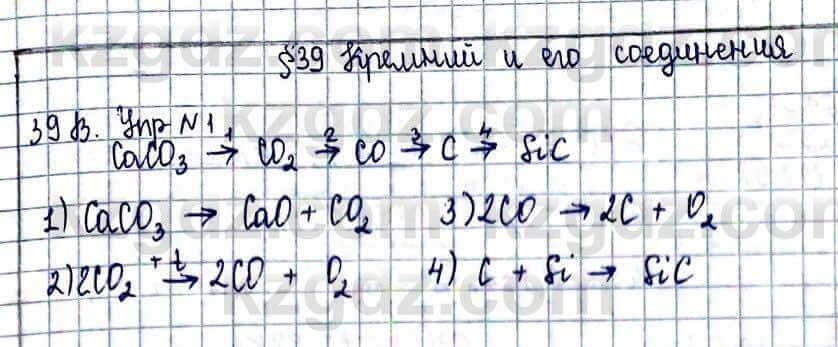 §39 Кремний и его соединения
39 В. Упр N 1
CaCO₃ →¹ CO₂ →² CO →³ C →⁴ SiC
1) CaCO₃ → CaO + CO₂ 3) 2CO → 2C + O₂
2) 2CO₂ →^{+t} 2CO + O₂ 4) C + Si → SiC
kzgdz.com